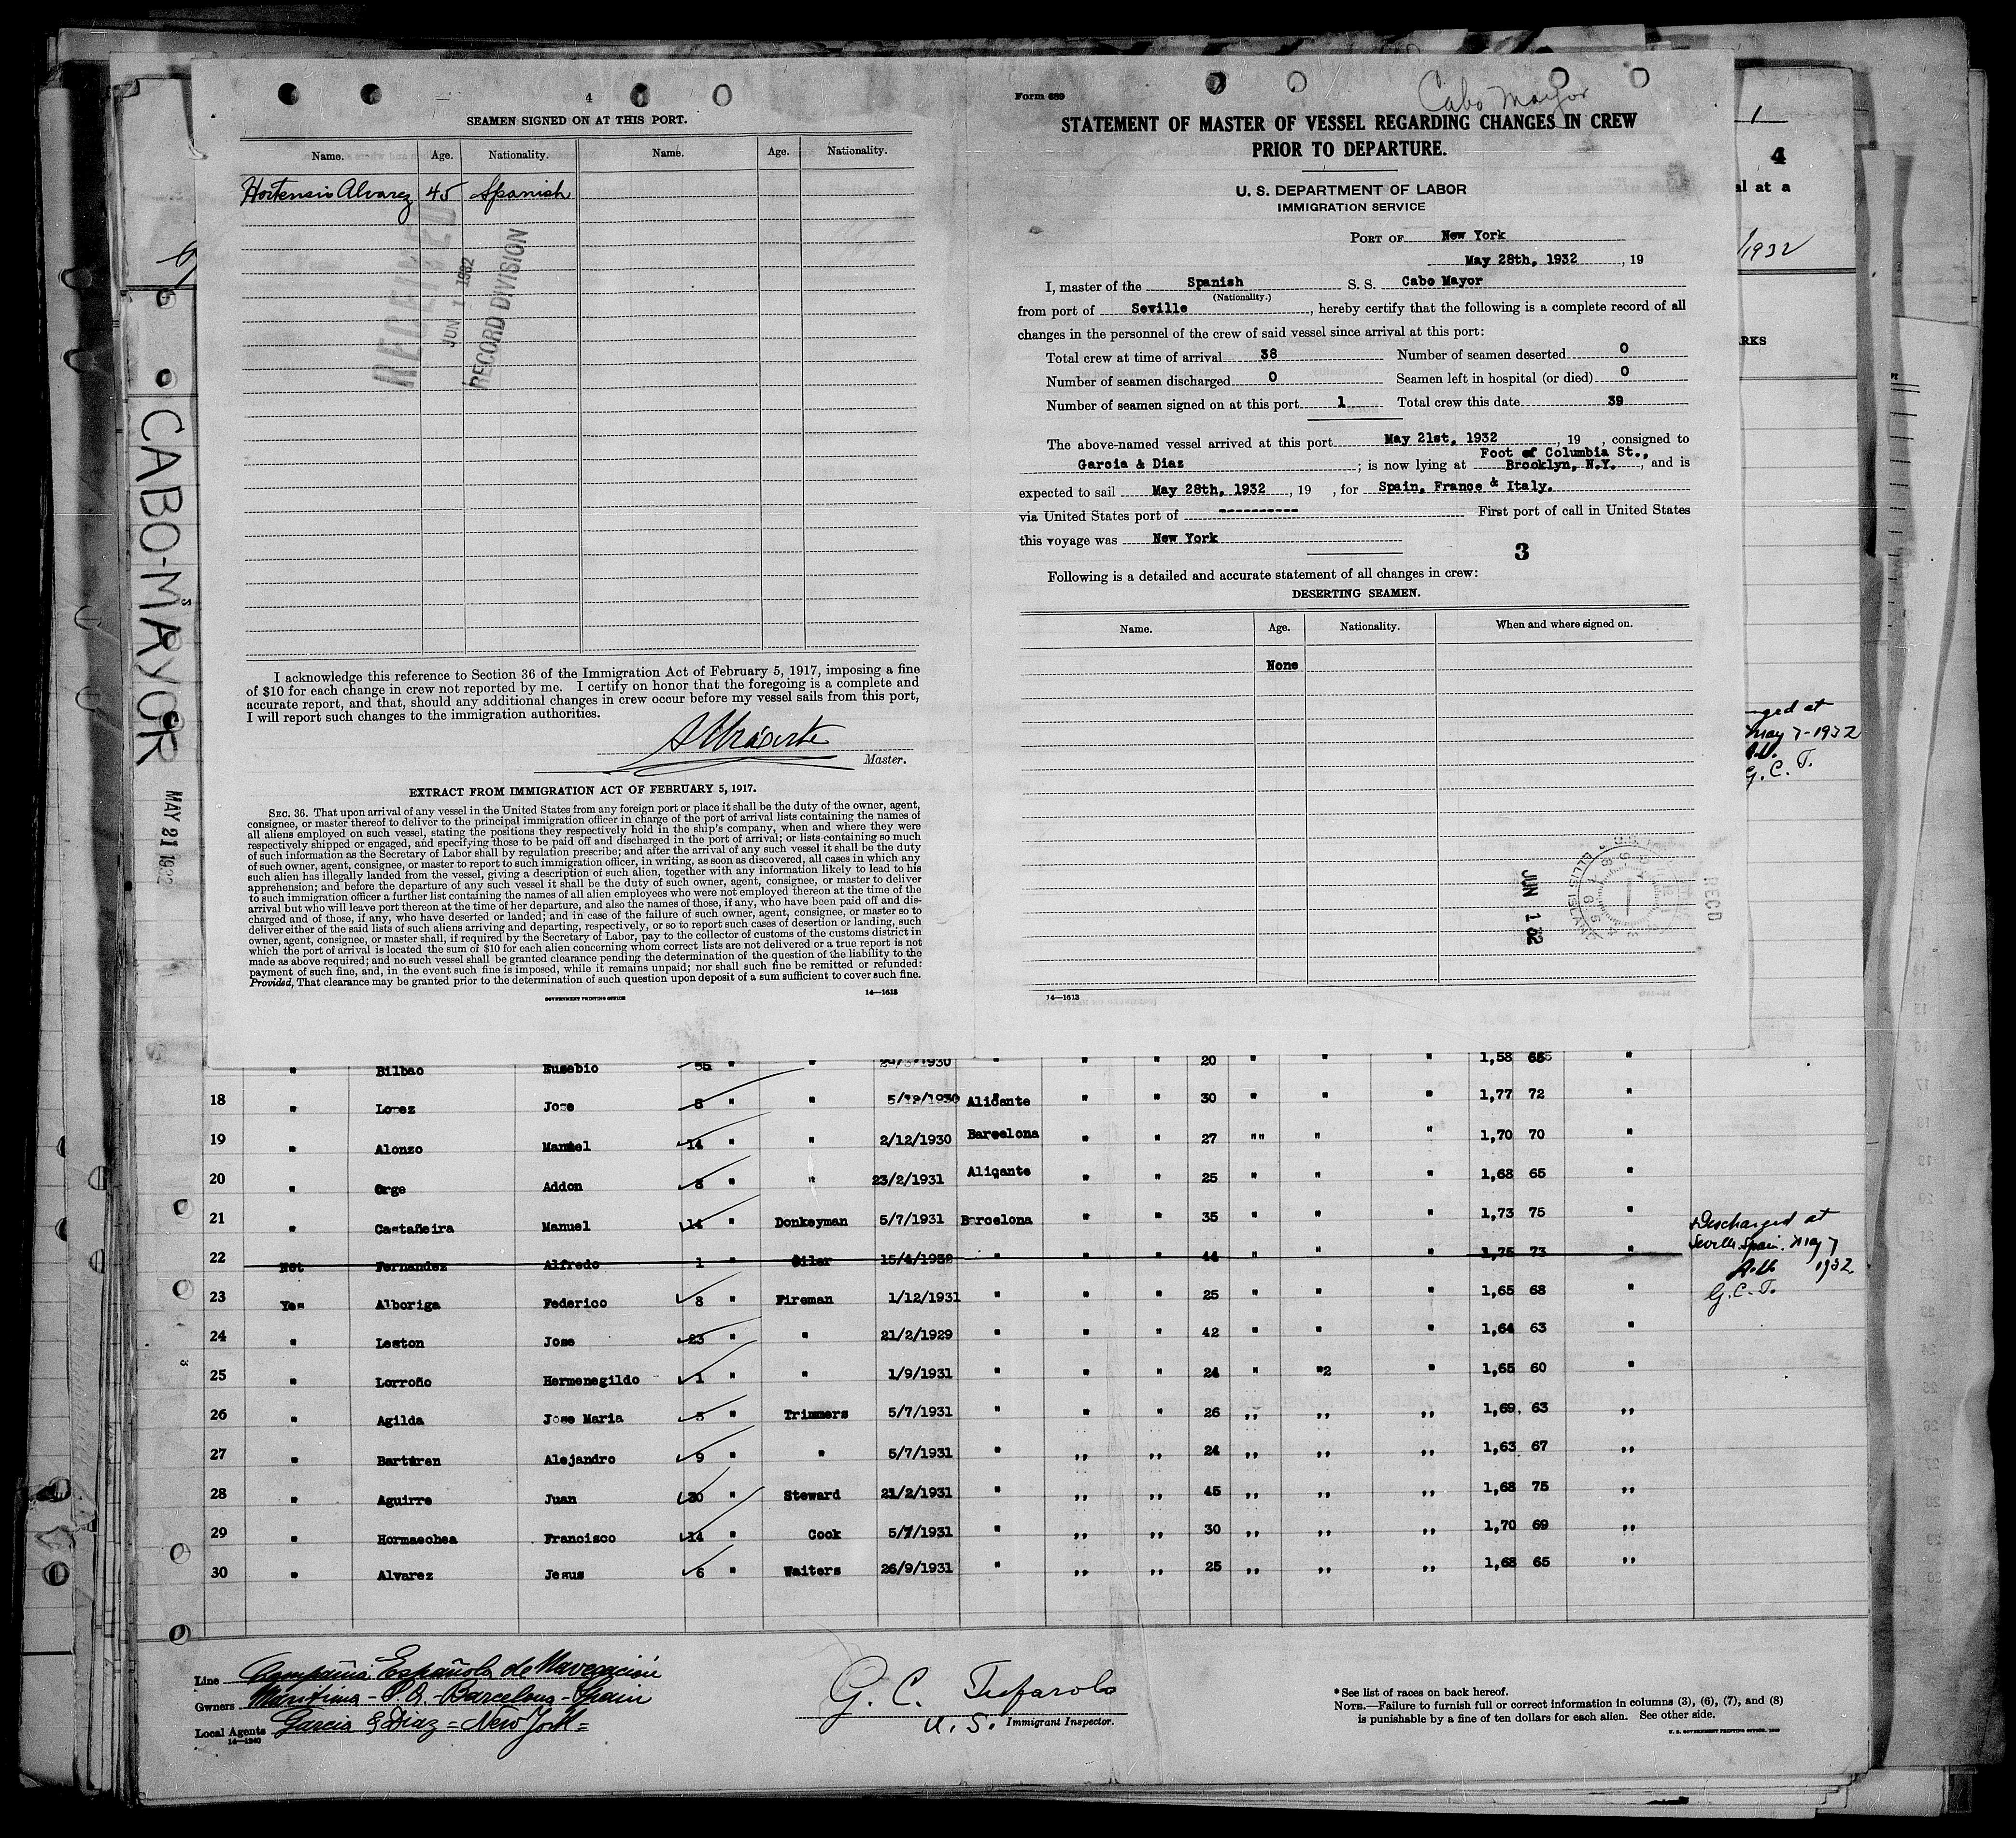 4
SEAMEN SIGNED ON AT THIS PORT.
Name. Age. Nationality. Name. Age. Nationality.
Hortensio Alvarez 45 Spanish
RECEIVED
JUN 1 1932
RECORD DIVISION
I acknowledge this reference to Section 36 of the Immigration Act of February 5, 1917, imposing a fine
of $10 for each change in crew not reported by me. I certify on honor that the foregoing is a complete and
accurate report, and that, should any additional changes in crew occur before my vessel sails from this port,
I will report such changes to the immigration authorities.
Master.
EXTRACT FROM IMMIGRATION ACT OF FEBRUARY 5, 1917.
SEC. 36. That upon arrival of any vessel in the United States from any foreign port or place it shall be the duty of the owner, agent,
consignee, or master thereof to deliver to the principal immigration officer in charge of the port of arrival lists containing the names of
all aliens employed on such vessel, stating the positions they respectively hold in the ship's company, when and where they were
respectively shipped or engaged, and specifying those to be paid off and discharged in the port of arrival; or lists containing so much
of such information as the Secretary of Labor shall by regulation prescribe; and after the arrival of any such vessel it shall be the duty
of such owner, agent, consignee, or master to report to such immigration officer, in writing, as soon as discovered, all cases in which any
such alien has illegally landed from the vessel, giving a description of such alien, together with any information likely to lead to his
apprehension; and before the departure of any such vessel it shall be the duty of such owner, agent, consignee, or master to deliver
to such immigration officer a further list containing the names of all alien employees who were not employed thereon at the time of the
arrival but who will leave port thereon at the time of her departure, and also the names of those, if any, who have been paid off and dis-
charged and of those, if any, who have deserted or landed; and in case of the failure of such owner, agent, consignee, or master so to
deliver either of the said lists of such aliens arriving and departing, respectively, or so to report such cases of desertion or landing, such
owner, agent, consignee, or master shall, if required by the Secretary of Labor, pay to the collector of customs of the customs district in
which the port of arrival is located the sum of $10 for each alien concerning whom correct lists are not delivered or a true report is not
made as above required; and no such vessel shall be granted clearance pending the determination of the question of the liability to the
payment of such fine, and, in the event such fine is imposed, while it remains unpaid; nor shall such fine be remitted or refunded:
Provided, That clearance may be granted prior to the determination of such question upon deposit of a sum sufficient to cover such fine.
GOVERNMENT PRINTING OFFICE 14—1613
Form 689
Cabo Mayor
STATEMENT OF MASTER OF VESSEL REGARDING CHANGES IN CREW
PRIOR TO DEPARTURE.
U. S. DEPARTMENT OF LABOR
IMMIGRATION SERVICE
PORT OF New York
May 28th, 1932 , 19
I, master of the Spanish S. S. Cabo Mayor
(Nationality.)
from port of Seville , hereby certify that the following is a complete record of all
changes in the personnel of the crew of said vessel since arrival at this port:
Total crew at time of arrival 38 Number of seamen deserted 0
Number of seamen discharged 0 Seamen left in hospital (or died) 0
Number of seamen signed on at this port 1 Total crew this date 39
The above-named vessel arrived at this port May 21st, 1932 , 19 , consigned to
Garcia & Diaz ; is now lying at Foot of Columbia St., Brooklyn, N.Y. , and is
expected to sail May 28th, 1932 , 19 , for Spain, France & Italy.
via United States port of ---------- First port of call in United States
this voyage was New York
3
Following is a detailed and accurate statement of all changes in crew:
DESERTING SEAMEN.
Name. Age. Nationality. When and where signed on.
None
JUN 1 32
RECD
14—1613
1
4
al at a
1932
RKS
nged at
May 7-1932
G. C. T.
CABO-MAYOR
MAY 21 1932
" Bilbao Eusebio 35 " " " " " 20 " " " 1,58 "
18 " Lopez Jose 8 " " 5/12/1930 Alicante " " 30 " " " 1,77 72 "
19 " Alonzo Manuel 14 " " 2/12/1930 Barcelona " " 27 "" " " 1,70 70 "
20 " Orge Addon 8 " " 23/2/1931 Alicante " " 25 " " " 1,68 65 "
21 " Castañeira Manuel 14 " Donkeyman 5/7/1931 Barcelona " " 35 " " " 1,73 75 "
22 Not Fernandez Alfredo 1 " Oiler 15/4/1932 " " " 44 " " " 1,75 73 "
Discharged at
Seville Spain. May 7
1932
G. C. T.
23 Yes Alboriga Federico 8 " Fireman 1/12/1931 " " " 25 " " " 1,65 68 "
24 " Leston Jose 23 " " 21/2/1929 " " " 42 " " " 1,64 63 "
25 " Lorroño Hermenegildo 1 " " 1/9/1931 " " " 24 " "2 " 1,65 60 "
26 " Agilda Jose Maria 5 " Trimmers 5/7/1931 " " " 26 ,, ,, ,, 1,69, 63 ,,
27 " Barturen Alejandro 9 " " 5/7/1931 " ,, ,, 24 ,, ,, ,, 1,63 67 ,,
28 " Aguirre Juan 30 " Steward 21/2/1931 " ,, ,, 45 ,, ,, ,, 1,68 75 ,,
29 " Hormaechea Francisco 14 " Cook 5/7/1931 " ,, ,, 30 ,, ,, ,, 1,70 69 ,,
30 " Alvarez Jesus 6 " Waiters 26/9/1931 " ,, ,, 25 ,, ,, ,, 1,68 65 ,,
Line Compañia Española de Navegación
Owners Maritima - S.A. - Barcelona - Spain
Local Agents Garcia & Diaz = New York =
14—1240
G. C. Tufarolo
U. S. Immigrant Inspector.
*See list of races on back hereof.
NOTE.—Failure to furnish full or correct information in columns (3), (6), (7), and (8)
is punishable by a fine of ten dollars for each alien. See other side.